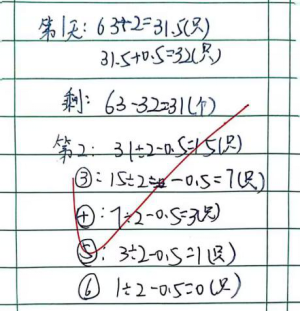 第1天: 63÷2=31.5(只)
31.5+0.5=32(只)
剩: 63-32=31(个)
第2: 31÷2-0.5=15(只)
③: 15÷2-0.5=7(只)
④: 7÷2-0.5=3(只)
⑤: 3÷2-0.5=1(只)
⑥ 1÷2-0.5=0(只)